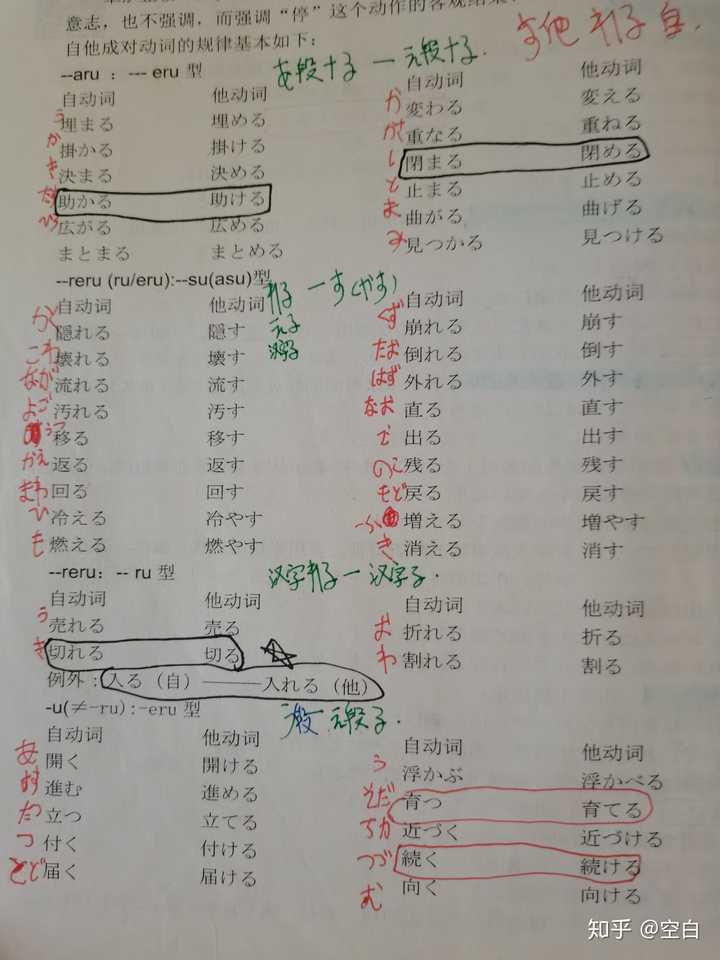 意志，也不强调，而强调“停”这个动作的客观结果.
自他成对动词的规律基本如下：
す他 れる 自.
--aru ：--- eru 型 あ段十る 一 え段十る.
自动词 他动词 自动词 他动词
う 埋まる 埋める か 変わる 変える
か 掛かる 掛ける かさ 重なる 重ねる
き 決まる 決める し 閉まる 閉める
たす 助かる 助ける と 止まる 止める
ひろ 広がる 広める ま 曲がる 曲げる
まとまる まとめる み 見つかる 見つける
--reru (ru/eru):--su(asu)型 れる 一 す(やす)
える
汉字る
自动词 他动词 自动词 他动词
かく 隠れる 隠す くず 崩れる 崩す
こわ 壊れる 壊す たお 倒れる 倒す
なが 流れる 流す はず 外れる 外す
よご 汚れる 汚す なお 直る 直す
うつ 移る 移す で 出る 出す
かえ 返る 返す のこ 残る 残す
まわ 回る 回す もど 戻る 戻す
ひ 冷える 冷やす ふ 増える 増やす
も 燃える 燃やす き 消える 消す
--reru：-- ru 型 汉字れる 一 汉字る.
自动词 他动词 自动词 他动词
う 売れる 売る お 折れる 折る
き 切れる 切る わ 割れる 割る
例外：入る（自）——入れる（他）
-u(≠-ru):-eru 型 う段 え段る.
自动词 他动词 自动词 他动词
あ 開く 開ける う 浮かぶ 浮かべる
すす 進む 進める そだ 育つ 育てる
た 立つ 立てる ちか 近づく 近づける
つ 付く 付ける つづ 続く 続ける
とど 届く 届ける む 向く 向ける
知乎 @空白